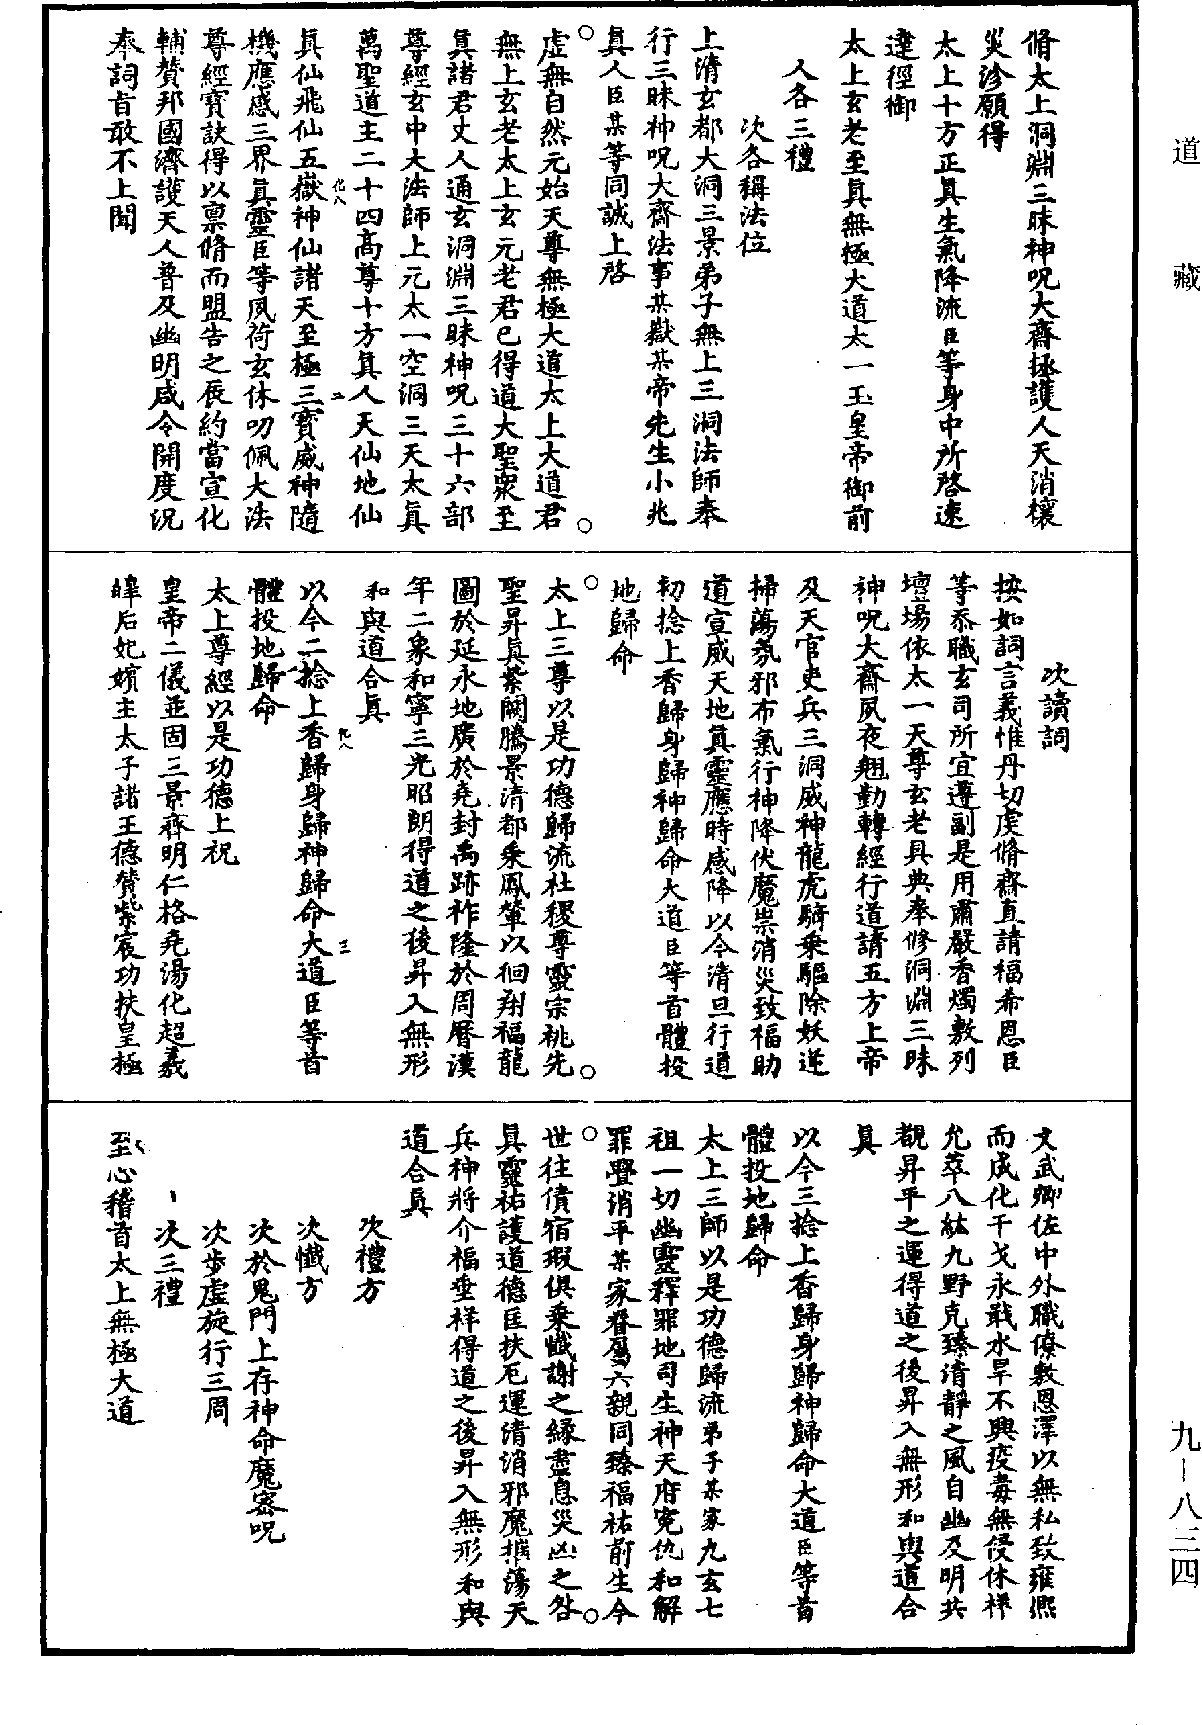 道藏
脩太上洞淵三昧神呪大齋拯護人天消禳
災沴願得
太上十方正真生氣降流臣等身中所啓速
達徑御
太上玄老至真無極大道太一玉皇帝御前
人各三禮
次各稱法位
上清玄都大洞三景弟子無上三洞法師奉
行三昧神呪大齋法事某嶽某帝先生小兆
真人臣某等同誠上啓
虛無自然元始天尊無極大道太上大道君
無上玄老太上玄元老君已得道大聖衆至
真諸君丈人通玄洞淵三昧神呪三十六部
尊經玄中大法師上元太一空洞三天太真
萬聖道主二十四高尊十方真人天仙地仙
化八 二
真仙飛仙五嶽神仙諸天至極三寶威神隨
機應感三界真靈臣等夙荷玄休叨佩大法
尊經寶訣得以稟脩而盟告之辰約當宣化
輔贊邦國濟護天人普及幽明咸令開度況
奉詞旨敢不上聞
次讀詞
按如詞言義惟丹切虔脩齋直請福希恩臣
等忝職玄司所宜遵副是用肅嚴香燭敷列
壇場依太一天尊玄老具典奉修洞淵三昧
神呪大齋夙夜翹勤轉經行道請五方上帝
及天官吏兵三洞威神龍虎騎乘驅除妖逆
掃蕩氛邪布氣行神降伏魔祟消災致福助
道宣威天地真靈應時感降以今清旦行道
初捻上香歸身歸神歸命大道臣等首體投
地歸命
太上三尊以是功德歸流社稷尊靈宗祧先
聖昇真紫闕騰景清都乘鳳輦以徊翔福龍
圖於延永地廣於堯封禹跡祚隆於周曆漢
年二象和寧三光昭朗得道之後昇入無形
和與道合真
化八 三
以今二捻上香歸身歸神歸命大道臣等首
體投地歸命
太上尊經以是功德上祝
皇帝二儀並固三景齊明仁格堯湯化超羲
皞后妃嬪主太子諸王德贊紫宸功扶皇極
文武卿佐中外職僚敷恩澤以無私致雍熙
而成化干戈永戢水旱不興疫毒無侵休祥
允萃八紘九野克臻清靜之風自幽及明共
覩昇平之運得道之後昇入無形和與道合
真
以今三捻上香歸身歸神歸命大道臣等首
體投地歸命
太上三師以是功德歸流弟子某家九玄七
祖一切幽靈釋罪地司生神天府寃仇和解
罪舋消平某家眷屬六親同臻福祐前生今
世往債宿瑕俱乘懺謝之緣盡息災凶之咎
真靈祐護道德匡扶厄運清消邪魔摧蕩天
兵神將介福垂祥得道之後昇入無形和與
道合真
次禮方
次懺方
次於鬼門上存神命魔密呪
次步虛旋行三周
次三禮
至心稽首太上無極大道
九-八三四